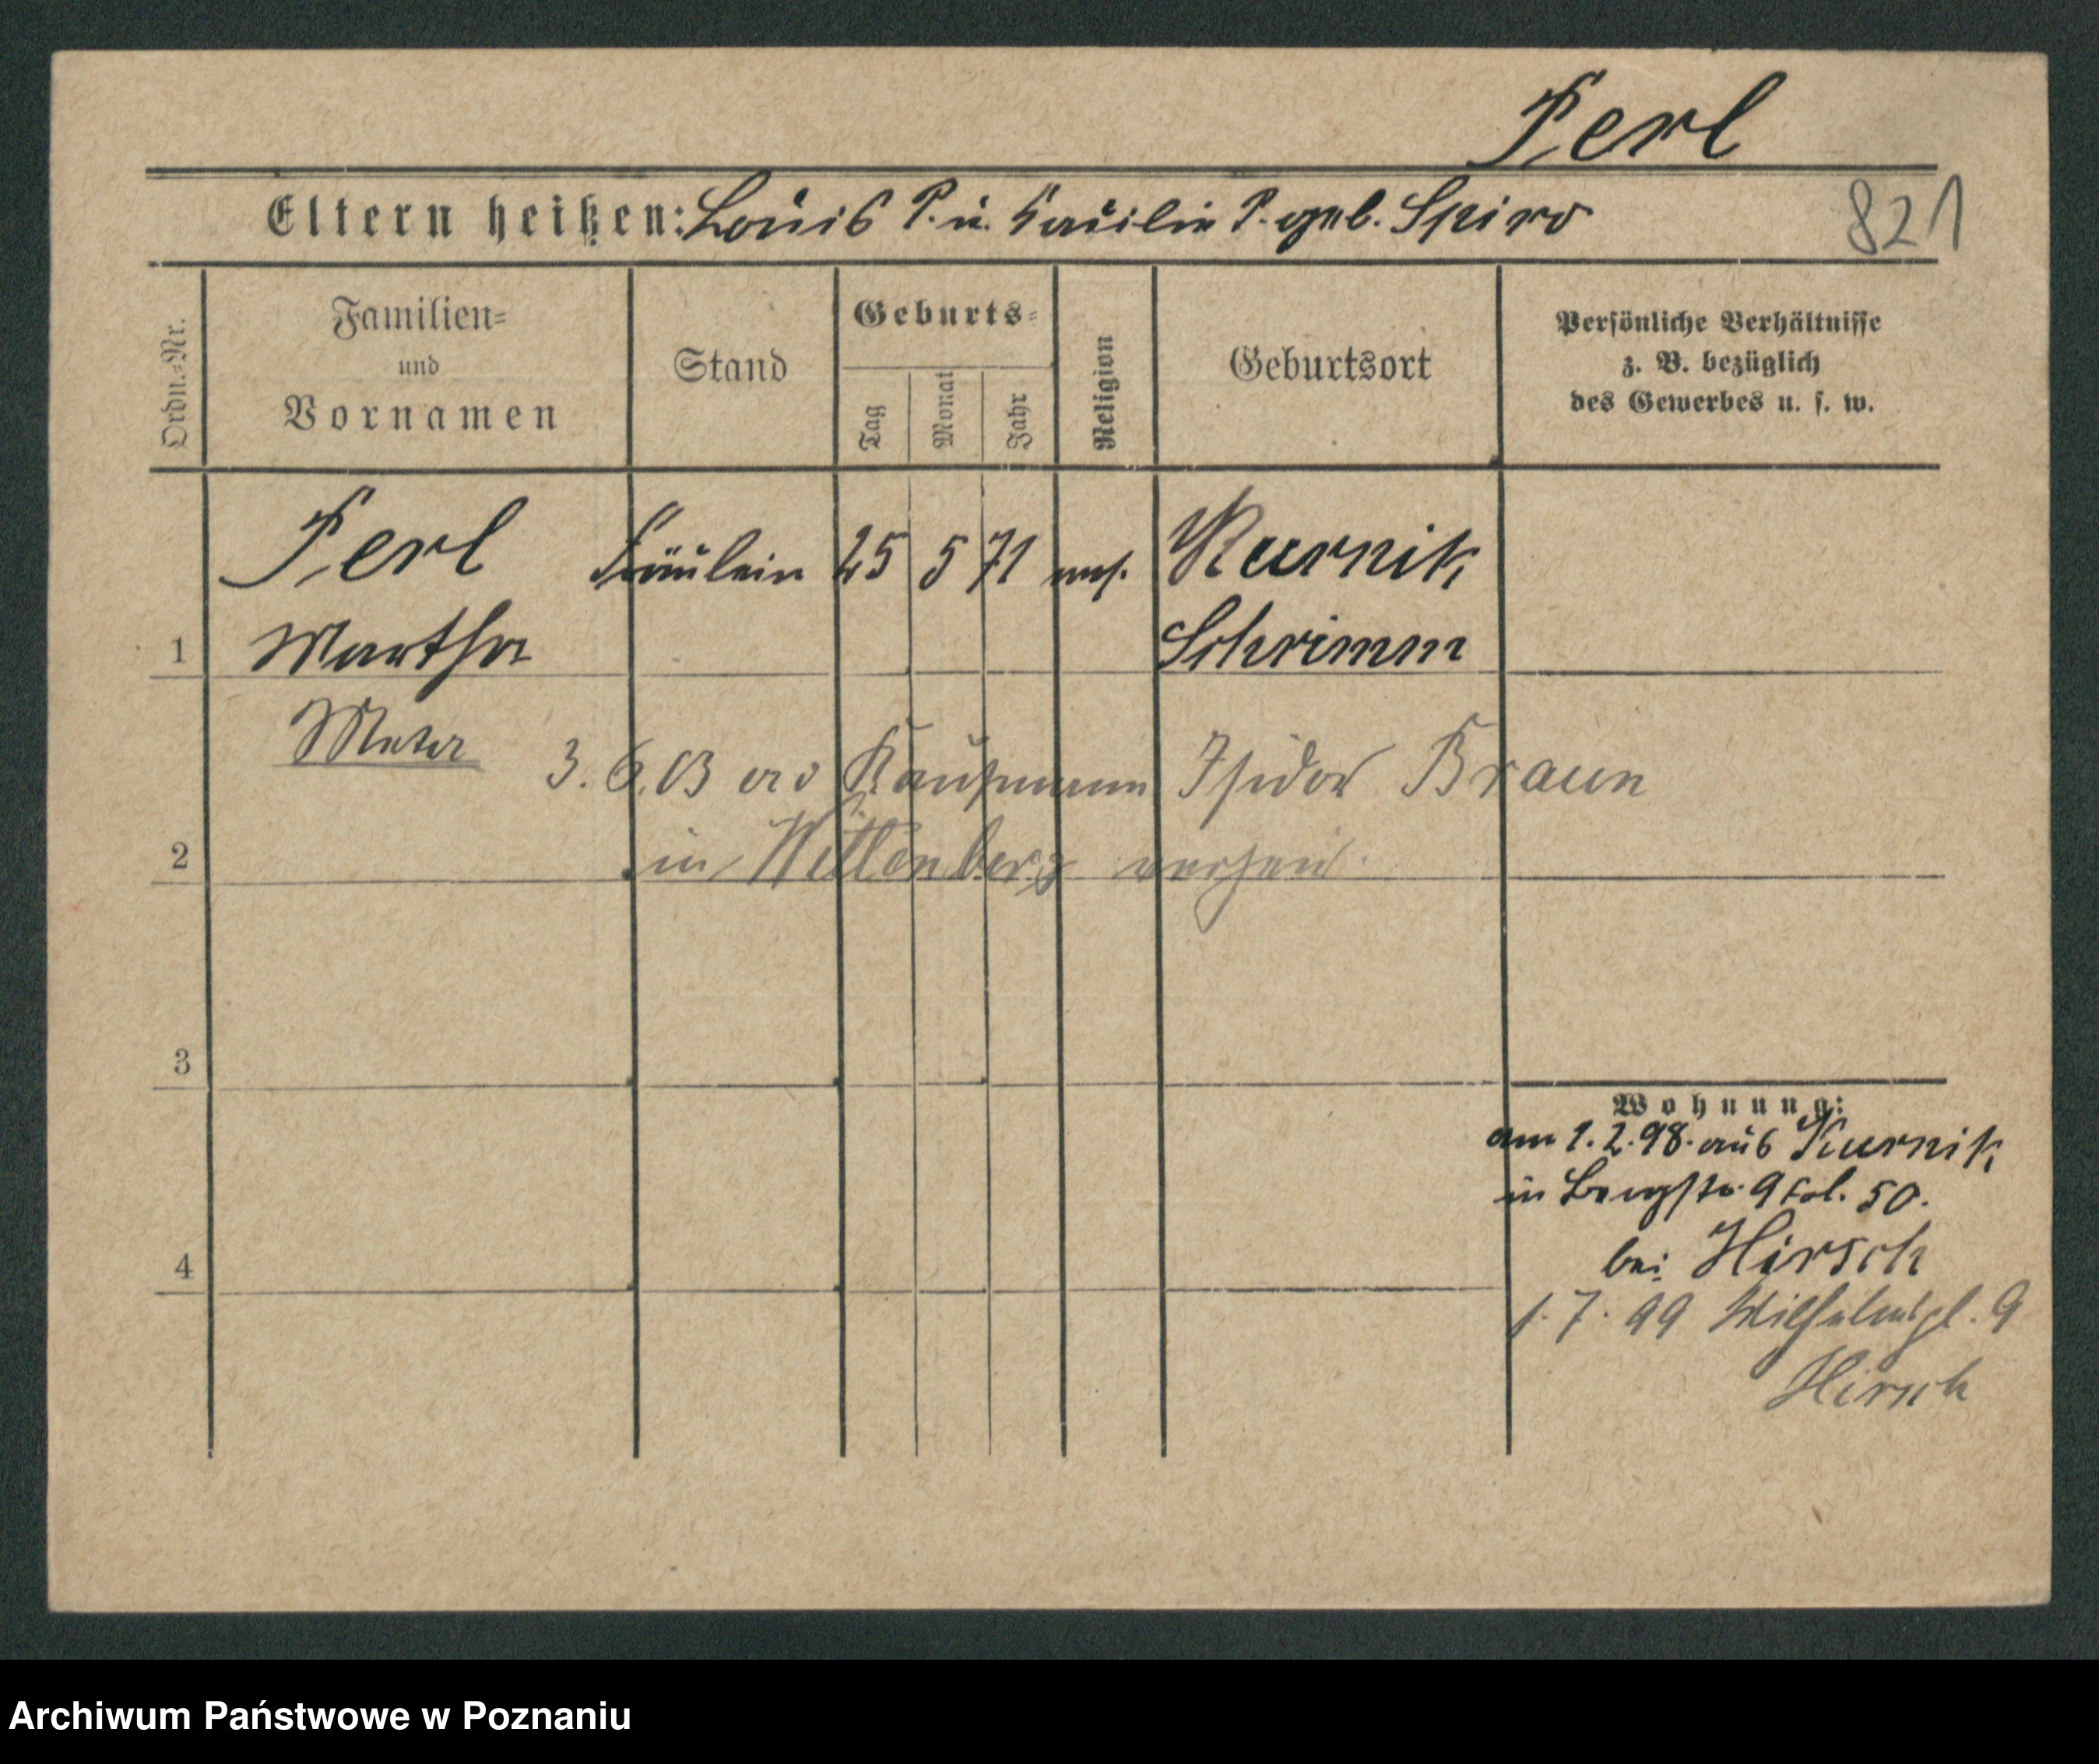 Perl
Eltern heißen: Louis P. u. Cäcilie P. geb. Spiro
821
Ordn.-Nr.
Familien-
und
Vornamen
Stand
Geburts-
Tag
Monat
Jahr
Religion
Geburtsort
Persönliche Verhältnisse
z. B. bezüglich
des Gewerbes u. s. w.
Perl Fräulein 25 5 71 mos. Kurnik
1 Martha Schrimm
3. 6. 03 Kaufmann Isidor Braun
2 in Wittenberg
3
Wohnung:
am 1. 2. 98. aus Kurnik
in Bergstr. 9 fol. 50.
bei Hirsch
4
1. 7. 99 Wilhelmspl. 9
Hirsch
Archiwum Państwowe w Poznaniu